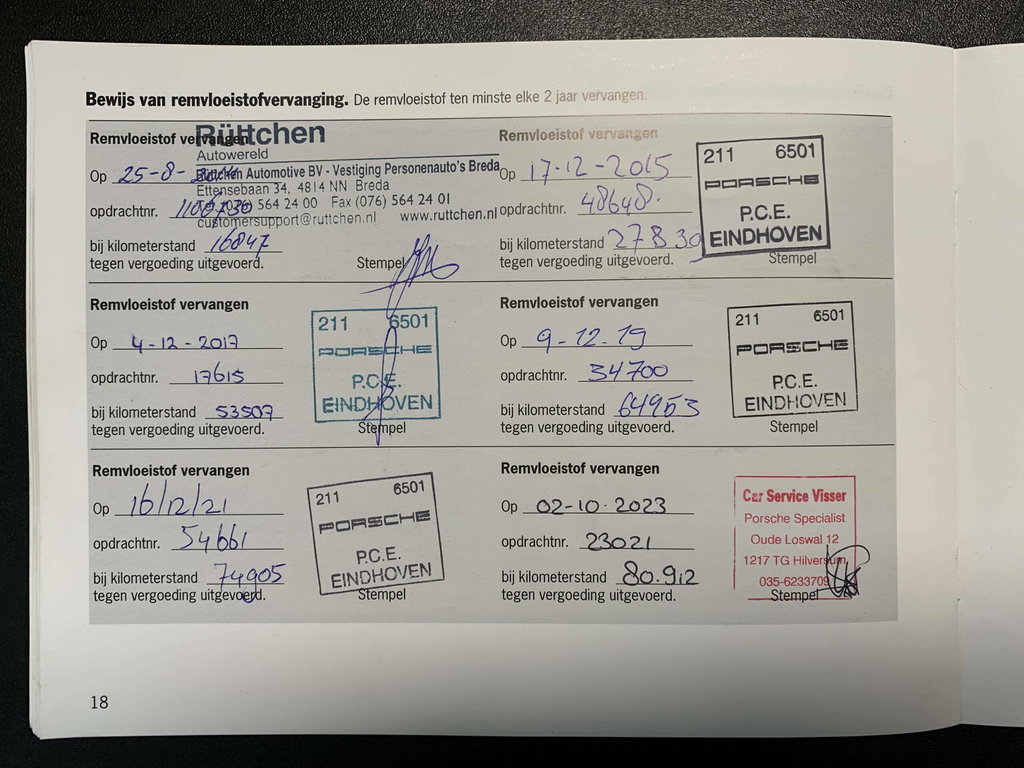 Bewijs van remvloeistofvervanging. De remvloeistof ten minste elke 2 jaar vervangen.
Remvloeistof vervangen
Rüttchen
Autowereld
Rüttchen Automotive BV - Vestiging Personenauto's Breda
Ettensebaan 34, 4814 NN Breda
Tel. (076) 564 24 00 Fax (076) 564 24 01
customersupport@ruttchen.nl www.ruttchen.nl
Op 25-8-
opdrachtnr. 1106730
bij kilometerstand 16847
tegen vergoeding uitgevoerd.
Stempel
Remvloeistof vervangen
Op 17-12-2015
opdrachtnr. 48648.
bij kilometerstand 27839
tegen vergoeding uitgevoerd.
211 6501
PORSCHE
P.C.E.
EINDHOVEN
Stempel
Remvloeistof vervangen
Op 4-12-2017
opdrachtnr. 17615
bij kilometerstand 53507
tegen vergoeding uitgevoerd.
211 6501
PORSCHE
P.C.E.
EINDHOVEN
Stempel
Remvloeistof vervangen
Op 9-12-19
opdrachtnr. 34700
bij kilometerstand 64953
tegen vergoeding uitgevoerd.
211 6501
PORSCHE
P.C.E.
EINDHOVEN
Stempel
Remvloeistof vervangen
Op 16/12/21
opdrachtnr. 54661
bij kilometerstand 74905
tegen vergoeding uitgevoerd.
211 6501
PORSCHE
P.C.E.
EINDHOVEN
Stempel
Remvloeistof vervangen
Op 02-10-2023
opdrachtnr. 23021
bij kilometerstand 80.912
tegen vergoeding uitgevoerd.
Car Service Visser
Porsche Specialist
Oude Loswal 12
1217 TG Hilversum
035-6233709
Stempel
18